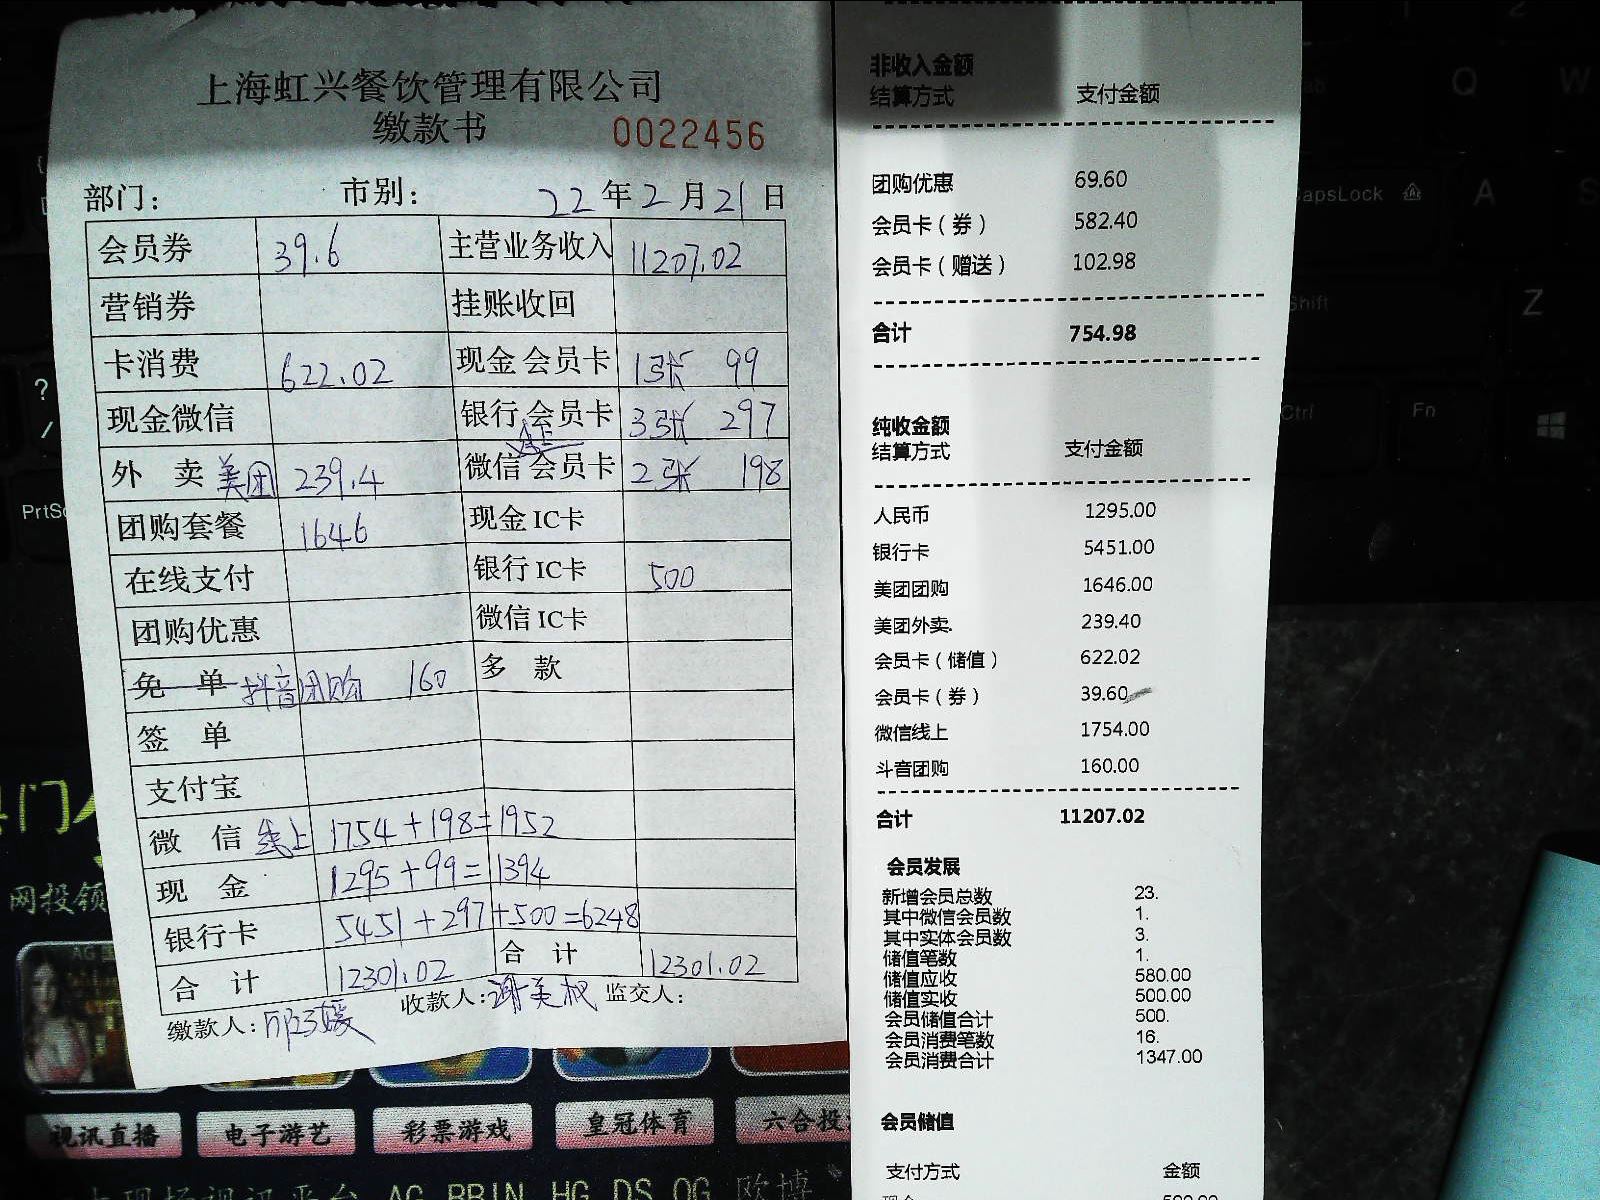 上海虹兴餐饮管理有限公司
缴款书 0022456
部门： 市别： 22年2月21日
会员券 39.6 主营业务收入 11207.02
营销券 挂账收回
卡消费 622.02 现金会员卡 1张 99
现金微信 银行会员卡 3张 297
外 卖 美团 239.4 微信会员卡 2张 198
团购套餐 1646 现金IC卡
在线支付 银行IC卡 500
团购优惠 微信IC卡
免 单 抖音团购 160 多 款
签 单
支付宝
微 信 线上 1754+198=1952
现 金 1295+99=1394
银行卡 5451+297+500=6248
合 计 12301.02 合 计 12301.02
缴款人： 收款人： 监交人：
非收入金额
结算方式 支付金额
团购优惠 69.60
会员卡（券） 582.40
会员卡（赠送） 102.98
合计 754.98
纯收金额
结算方式 支付金额
人民币 1295.00
银行卡 5451.00
美团团购 1646.00
美团外卖. 239.40
会员卡（储值） 622.02
会员卡（券） 39.60
微信线上 1754.00
斗音团购 160.00
合计 11207.02
会员发展
新增会员总数 23.
其中微信会员数 1.
其中实体会员数 3.
储值笔数 1.
储值应收 580.00
储值实收 500.00
会员储值合计 500.
会员消费笔数 16.
会员消费合计 1347.00
会员储值
支付方式 金额
网投领
视讯直播 电子游艺 彩票游戏 皇冠体育 六合投
AG BBIN HG DS OG 欧博
Q W
CapsLock A S
Shift Z
Ctrl Fn
? /
PrtSc